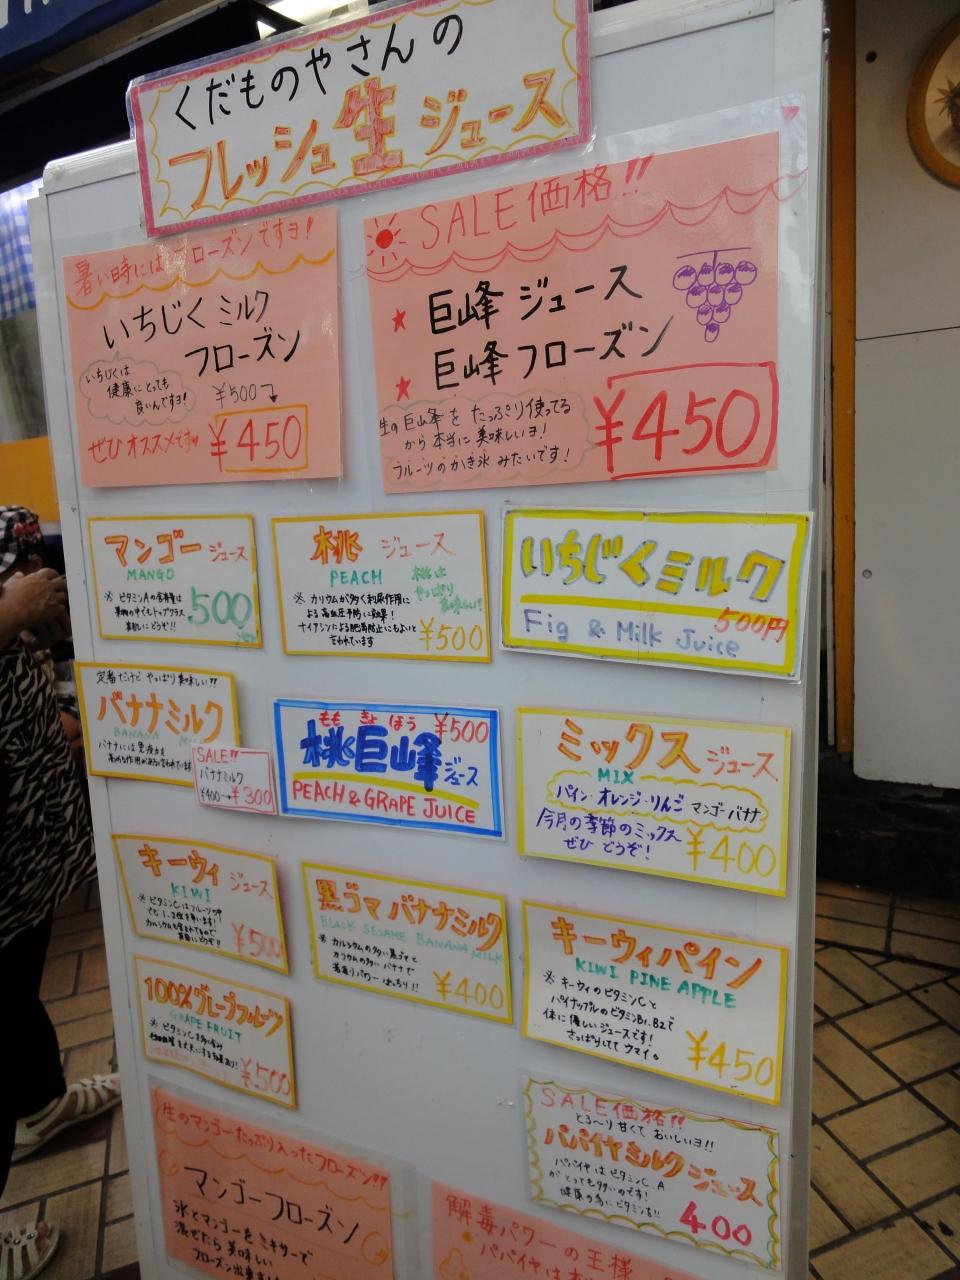 くだものやさんの
フレッシュ生ジュース
暑い時にはフローズンですヨ!
いちじくミルク
フローズン
いちじくは
健康にとっても
良いんですヨ!
¥500
ぜひオススメです♥
¥450
SALE価格!!
★ 巨峰ジュース
★ 巨峰フローズン
生の巨峰をたっぷり使ってる
から本当に美味しいヨ!
フルーツのかき氷みたいです!
¥450
マンゴージュース
MANGO
※ビタミンAの含有量は
果物の中でもトップクラス
500
桃 ジュース
PEACH
桃は
やっぱり
美味しい!!
※カリウムが多く利尿作用に
よる高血圧予防に効果!
ナイアシンによる肥満防止にもよいと
言われています
¥500
いちじくミルク
500円
Fig & Milk Juice
定番だけどやっぱり美味しい!!
バナナミルク
BANANA MILK
バナナには免疫力を
SALE!!
バナナミルク
¥400→¥300
もも きょ ほう
¥500
桃巨峰ジュース
PEACH & GRAPE JUICE
ミックスジュース
MIX
パイン・オレンジ・りんご マンゴー・バナナ
今月の季節のミックス
ぜひ どうぞ!
¥400
キーウィジュース
KIWI
※ビタミンCはフルーツの中
でも1、2位を争います!
カルシウムも含まれてるので
¥500
黒ゴマバナナミルク
BLACK SESAME BANANA MILK
※カルシウムの多い黒ゴマと
カリウムの多いバナナで
若返りパワーばっちり!!
¥400
キーウィパイン
KIWI PINE APPLE
※キーウィのビタミンCと
パイナップルのビタミンB1、B2で
体に優しいジュースです!
さっぱりしてウマイ。
¥450
100%グレープフルーツ
GRAPE FRUIT
¥500
SALE価格!!
とろ〜り甘くておいしいヨ!!
パパイヤミルクジュース
パパイヤはビタミンC、A
がとっても多いのです!
健康の為にビタミンを!!
400
生のマンゴーたっぷり入ったフローズン!!
マンゴーフローズン
氷とマンゴーをミキサーで
混ぜたら美味しい
フローズン出来ました
解毒パワーの王様